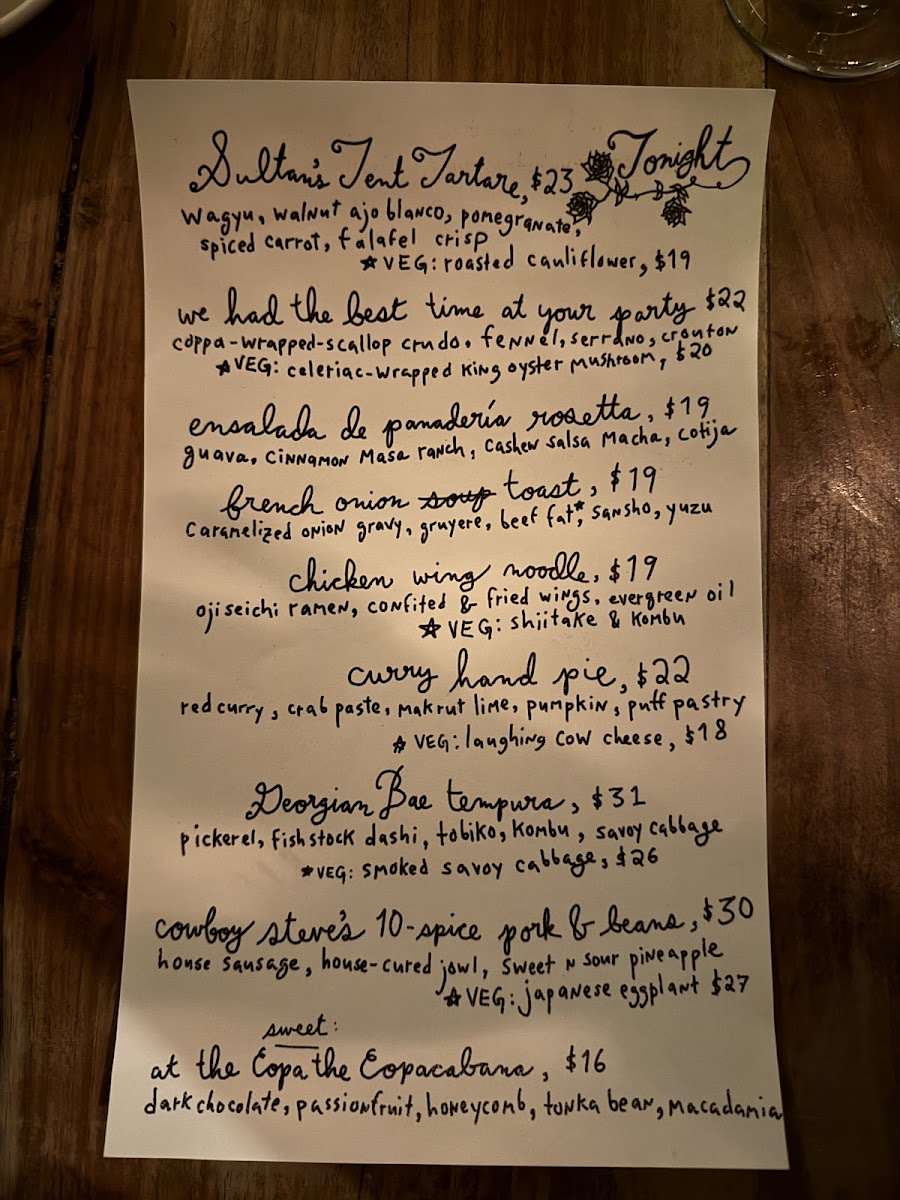 Tonight
Sultan's Tent Tartare, $23
wagyu, walnut ajo blanco, pomegranate,
spiced carrot, falafel crisp
★VEG: roasted cauliflower, $19
we had the best time at your party $22
coppa-wrapped-scallop crudo, fennel, serrano, crouton
★VEG: celeriac-wrapped king oyster mushroom, $20
ensalada de panadería rosetta, $19
guava, cinnamon masa ranch, cashew salsa macha, cotija
french onion ~~soup~~ toast, $19
caramelized onion gravy, gruyere, beef fat*, sansho, yuzu
chicken wing noodle, $19
ojiseichi ramen, confited & fried wings, evergreen oil
★ VEG: shiitake & kombu
curry hand pie, $22
red curry, crab paste, makrut lime, pumpkin, puff pastry
★ VEG: laughing cow cheese, $18
Georgian Bae tempura, $31
pickerel, fish stock dashi, tobiko, kombu, savoy cabbage
★VEG: smoked savoy cabbage, $26
cowboy steve's 10-spice pork & beans, $30
house sausage, house-cured jowl, sweet n sour pineapple
★VEG: japanese eggplant $27
sweet:
at the Copa the Copacabana, $16
dark chocolate, passionfruit, honeycomb, tonka bean, macadamia